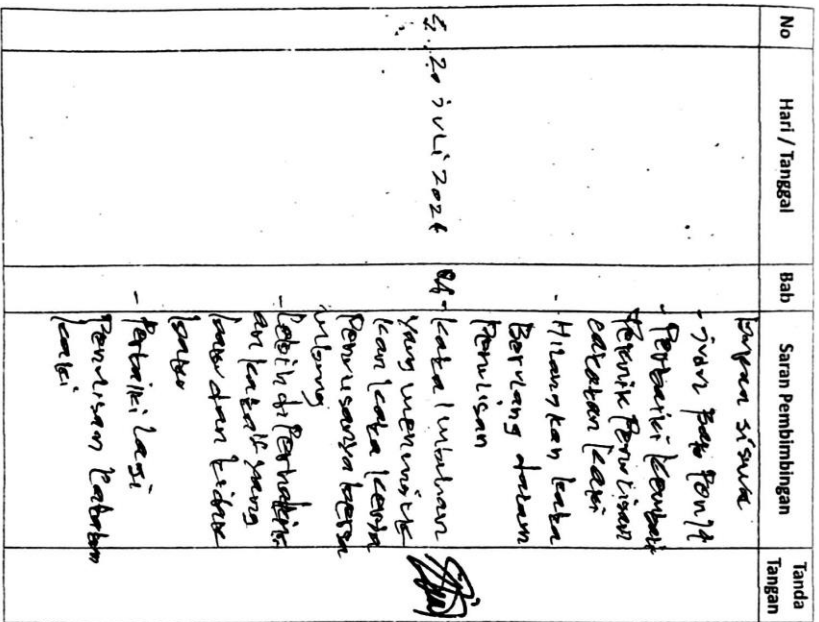 No
Hari / Tanggal
Bab
Saran Pembimbingan
Tanda
Tangan
siswa
- Perbaiki kembali
Teknik Penulisan
catatan kaki
- Hilangkan kata
Berulang dalam
Penulisan
20 juli 2024
- kata imbuhan
yang menunjuk
kan kata kerja
Penulisannya bersa
mbung
- Lebih di Perhatik
an kata yang
baku dan tidak
baku
- Perbaiki lagi
Penulisan Catatan
kaki